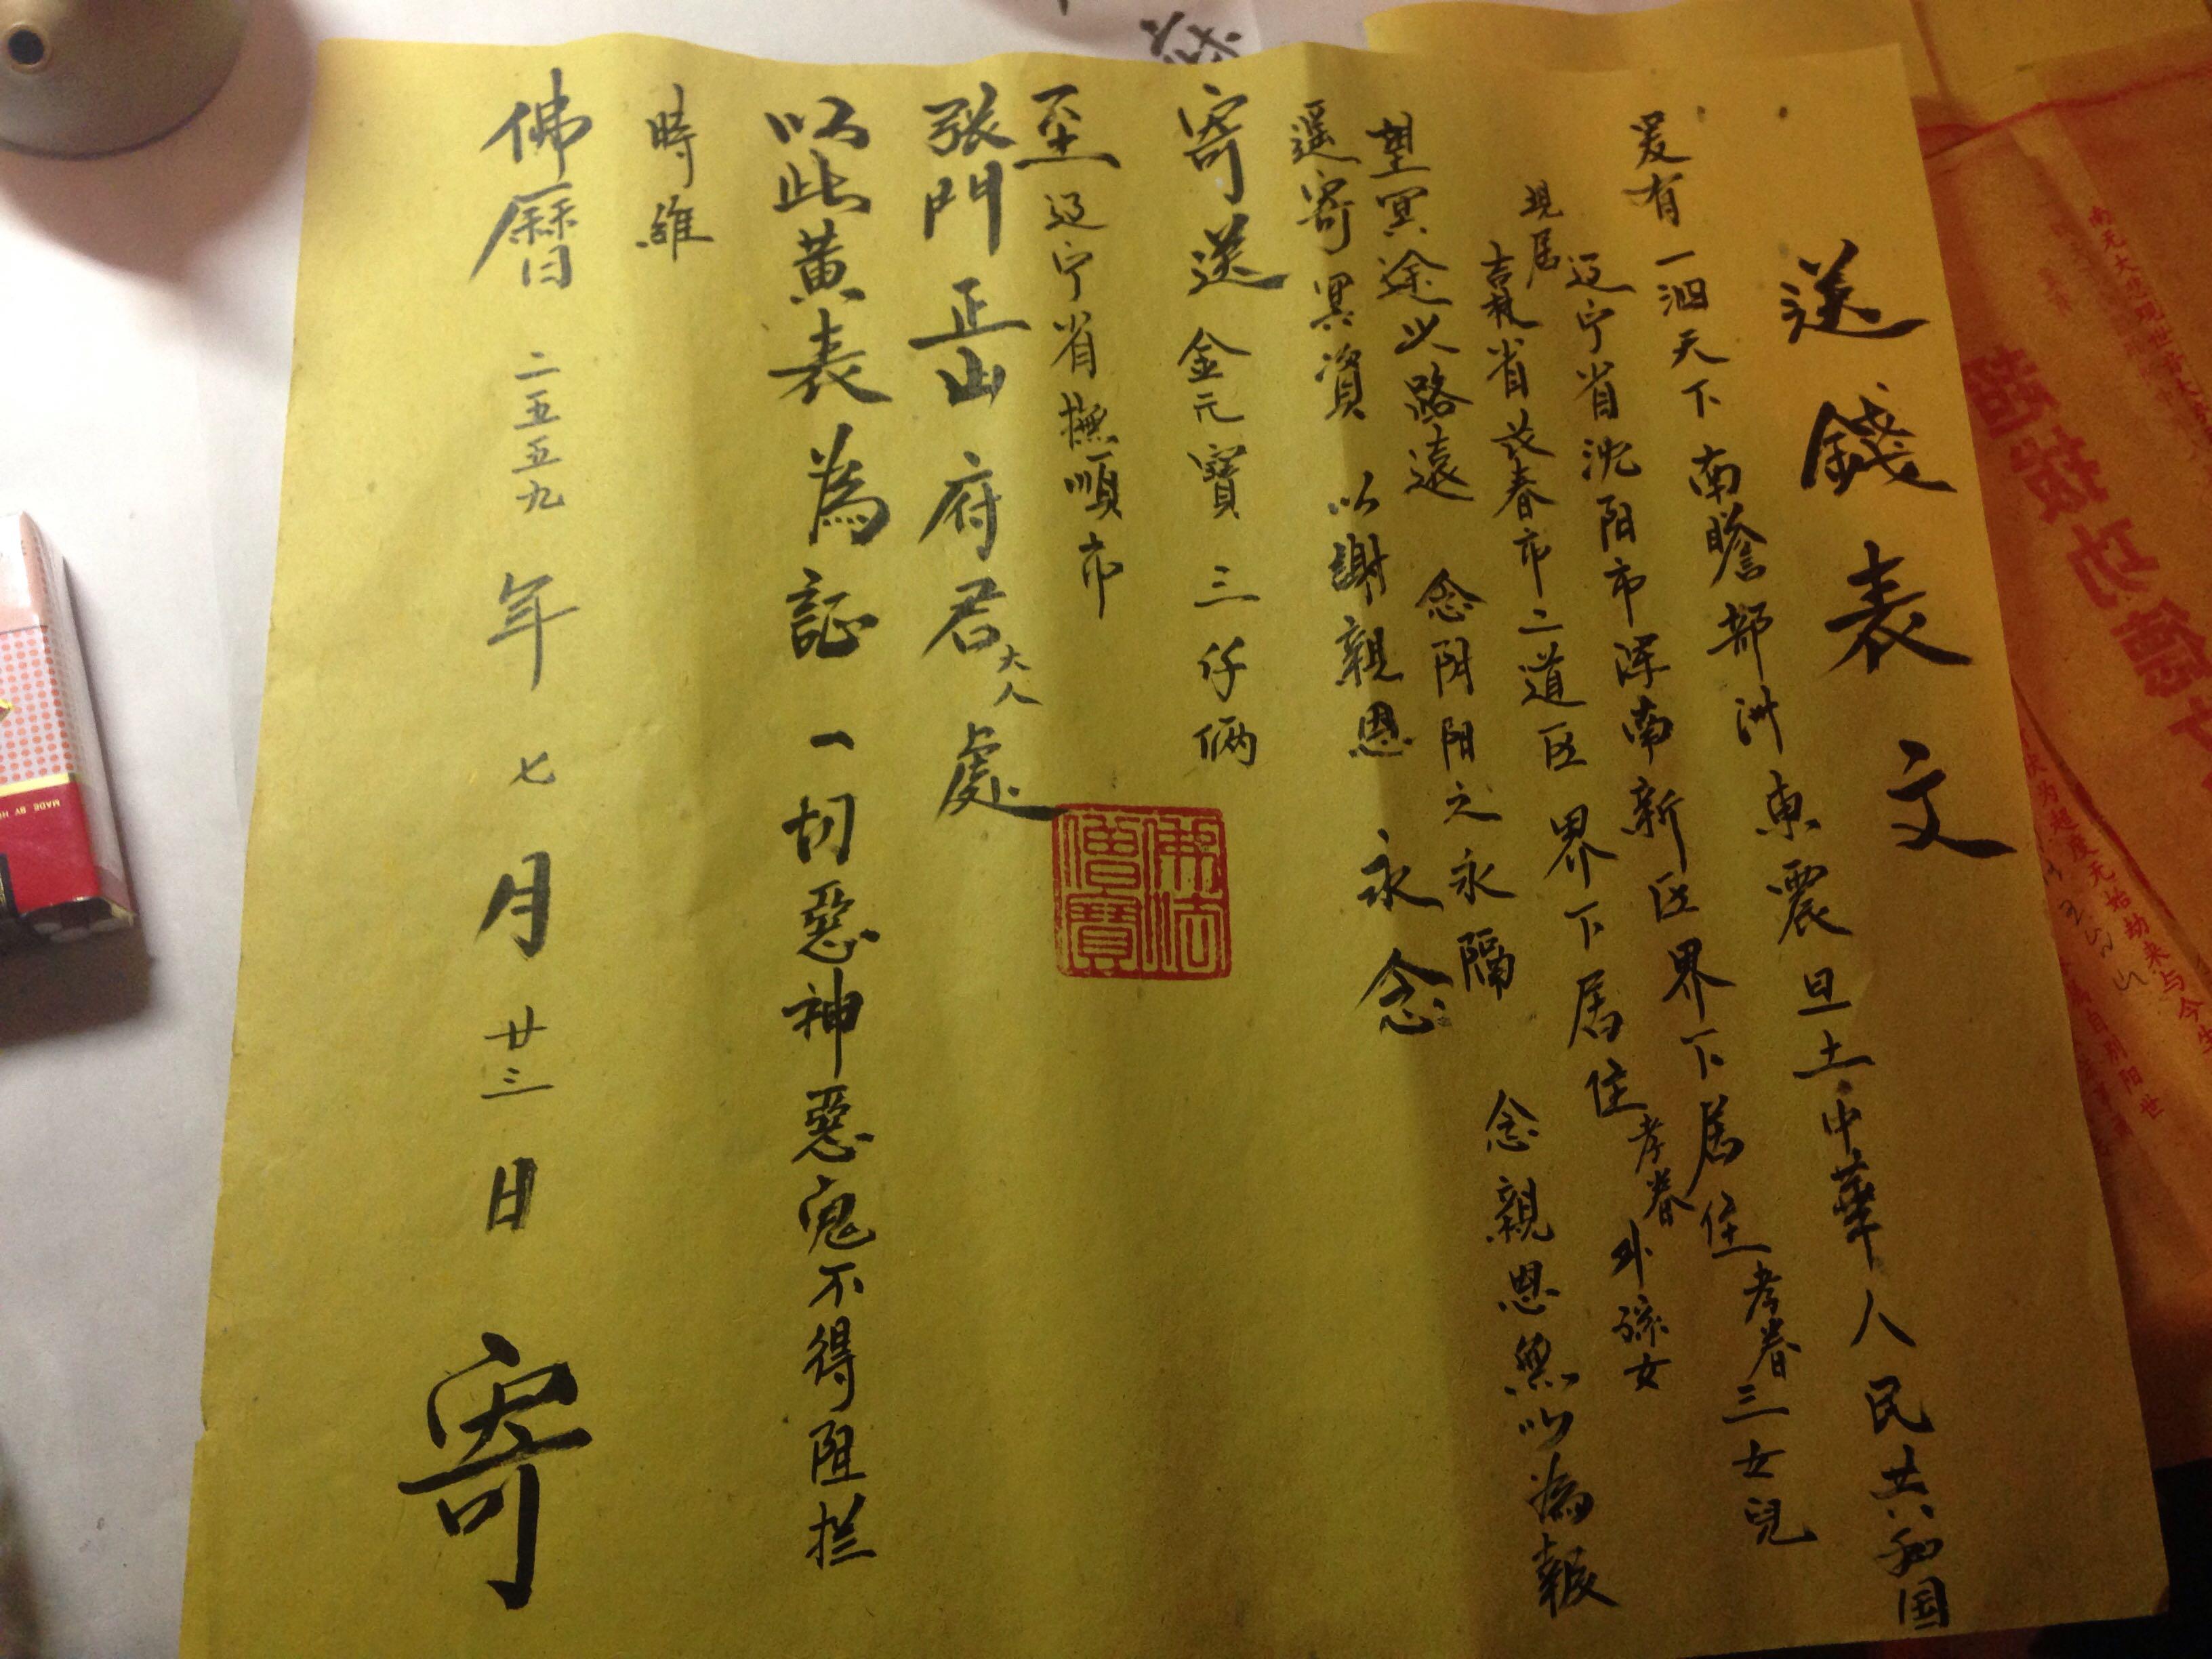 送錢表文
爰有一泗天下南瞻部洲東震旦土中華人民共和国
辽宁省沈阳市浑南新区界下居住孝眷三女兒
現居吉林省长春市二道区界下居住孝眷外孫女
望冥途以路遠 念阴阳之永隔 念親恩無以為報
遥寄冥資 以謝親恩 永念
寄送 金元寶 三仟倆
至辽宁省撫順市
張門正山府君大人處
以此黄表為証 一切惡神惡鬼不得阻拦
時維
佛曆二五五九年七月廿三日 寄
佛法
僧寶
超拔功德